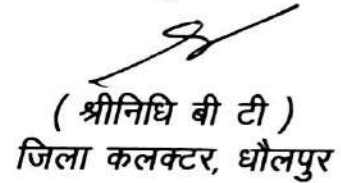 ( श्रीनिधि बी टी )
जिला कलक्टर, धौलपुर